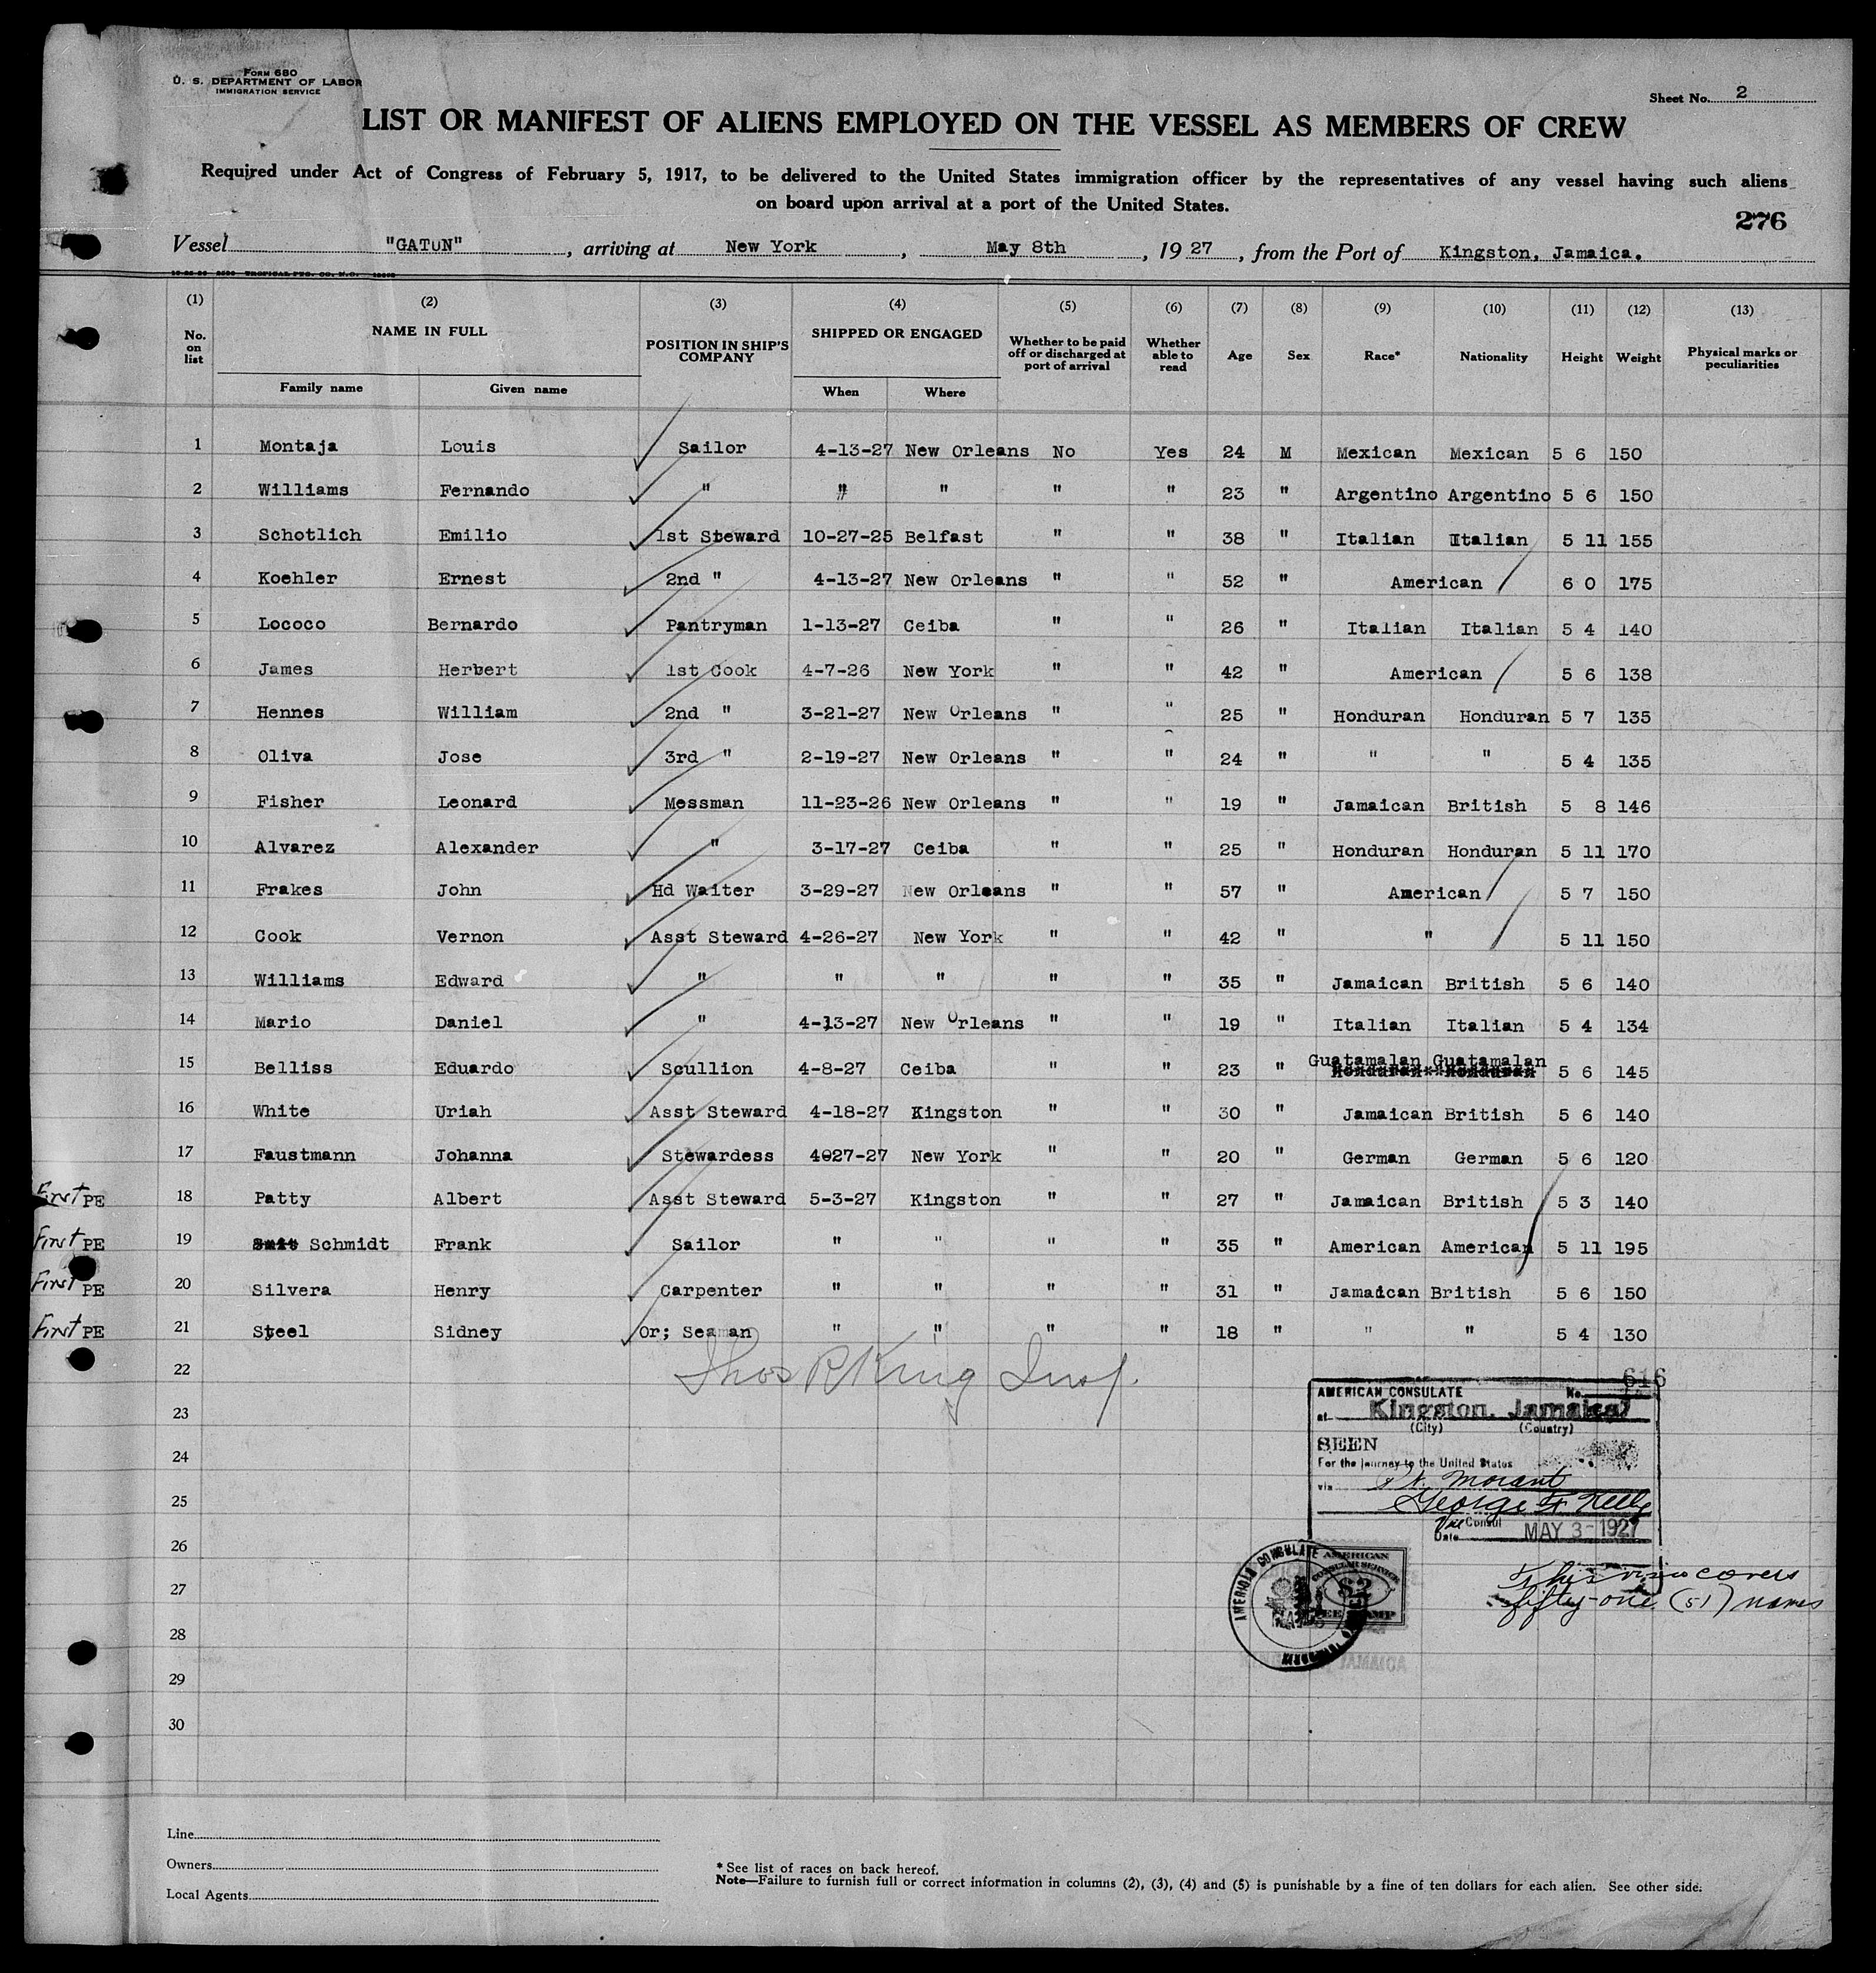 Form 680
U. S. DEPARTMENT OF LABOR
IMMIGRATION SERVICE
Sheet No. 2
LIST OR MANIFEST OF ALIENS EMPLOYED ON THE VESSEL AS MEMBERS OF CREW
Required under Act of Congress of February 5, 1917, to be delivered to the United States immigration officer by the representatives of any vessel having such aliens
on board upon arrival at a port of the United States.
276
Vessel "GATUN", arriving at New York, May 8th, 1927, from the Port of Kingston, Jamaica.
(1) (2) (3) (4) (5) (6) (7) (8) (9) (10) (11) (12) (13)
No. on list NAME IN FULL Family name Given name POSITION IN SHIP'S COMPANY SHIPPED OR ENGAGED When Where Whether to be paid off or discharged at port of arrival Whether able to read Age Sex Race* Nationality Height Weight Physical marks or peculiarities
1 Montaja Louis Sailor 4-13-27 New Orleans No Yes 24 M Mexican Mexican 5 6 150
2 Williams Fernando " " " " " 23 " Argentino Argentino 5 6 150
3 Schotlich Emilio 1st Steward 10-27-25 Belfast " " 38 " Italian Italian 5 11 155
4 Koehler Ernest 2nd " 4-13-27 New Orleans " " 52 " American 6 0 175
5 Lococo Bernardo Pantryman 1-13-27 Ceiba " " 26 " Italian Italian 5 4 140
6 James Herbert 1st Cook 4-7-26 New York " " 42 " American 5 6 138
7 Hennes William 2nd " 3-21-27 New Orleans " " 25 " Honduran Honduran 5 7 135
8 Oliva Jose 3rd " 2-19-27 New Orleans " " 24 " " " 5 4 135
9 Fisher Leonard Messman 11-23-26 New Orleans " " 19 " Jamaican British 5 8 146
10 Alvarez Alexander " 3-17-27 Ceiba " " 25 " Honduran Honduran 5 11 170
11 Frakes John Hd Waiter 3-29-27 New Orleans " " 57 " American 5 7 150
12 Cook Vernon Asst Steward 4-26-27 New York " " 42 " " 5 11 150
13 Williams Edward " " " " " 35 " Jamaican British 5 6 140
14 Mario Daniel " 4-13-27 New Orleans " " 19 " Italian Italian 5 4 134
15 Belliss Eduardo Scullion 4-8-27 Ceiba " " 23 " Guatamalan Guatamalan 5 6 145
16 White Uriah Asst Steward 4-18-27 Kingston " " 30 " Jamaican British 5 6 140
17 Faustmann Johanna Stewardess 4027-27 New York " " 20 " German German 5 6 120
First PE 18 Patty Albert Asst Steward 5-3-27 Kingston " " 27 " Jamaican British 5 3 140
First PE 19 Schmidt Frank Sailor " " " " 35 " American American 5 11 195
First PE 20 Silvera Henry Carpenter " " " " 31 " Jamaican British 5 6 150
First PE 21 Steel Sidney Or; Seaman " " " " 18 " " " 5 4 130
22 Thos R King Insp.
23
24
25
26
27
28
29
30
616
AMERICAN CONSULATE No.
at Kingston, Jamaica
(City) (Country)
SEEN
For the journey to the United States
via Pt. Morant
George F. Kelly
Vice Consul
Date MAY 3 - 1927
This visa covers
fifty-one (51) names
AMERICAN CONSULATE
AMERICAN
CONSULAR SERVICE
$2
FEE STAMP
JAMAICA
Line
Owners
Local Agents
* See list of races on back hereof.
Note—Failure to furnish full or correct information in columns (2), (3), (4) and (5) is punishable by a fine of ten dollars for each alien. See other side.